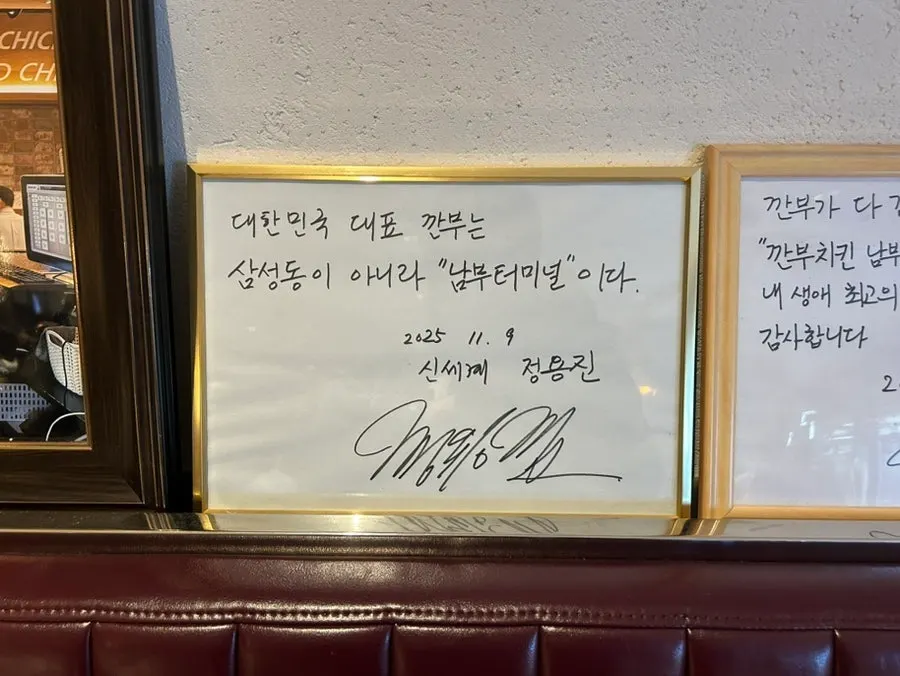 CHIC
D CH
대한민국 대표 깐부는
삼성동이 아니라 "남부터미널"이다.
2025 11. 9
신세계 정용진
깐부가 다
"깐부치킨 남부
내 생애 최고의
감사합니다
2